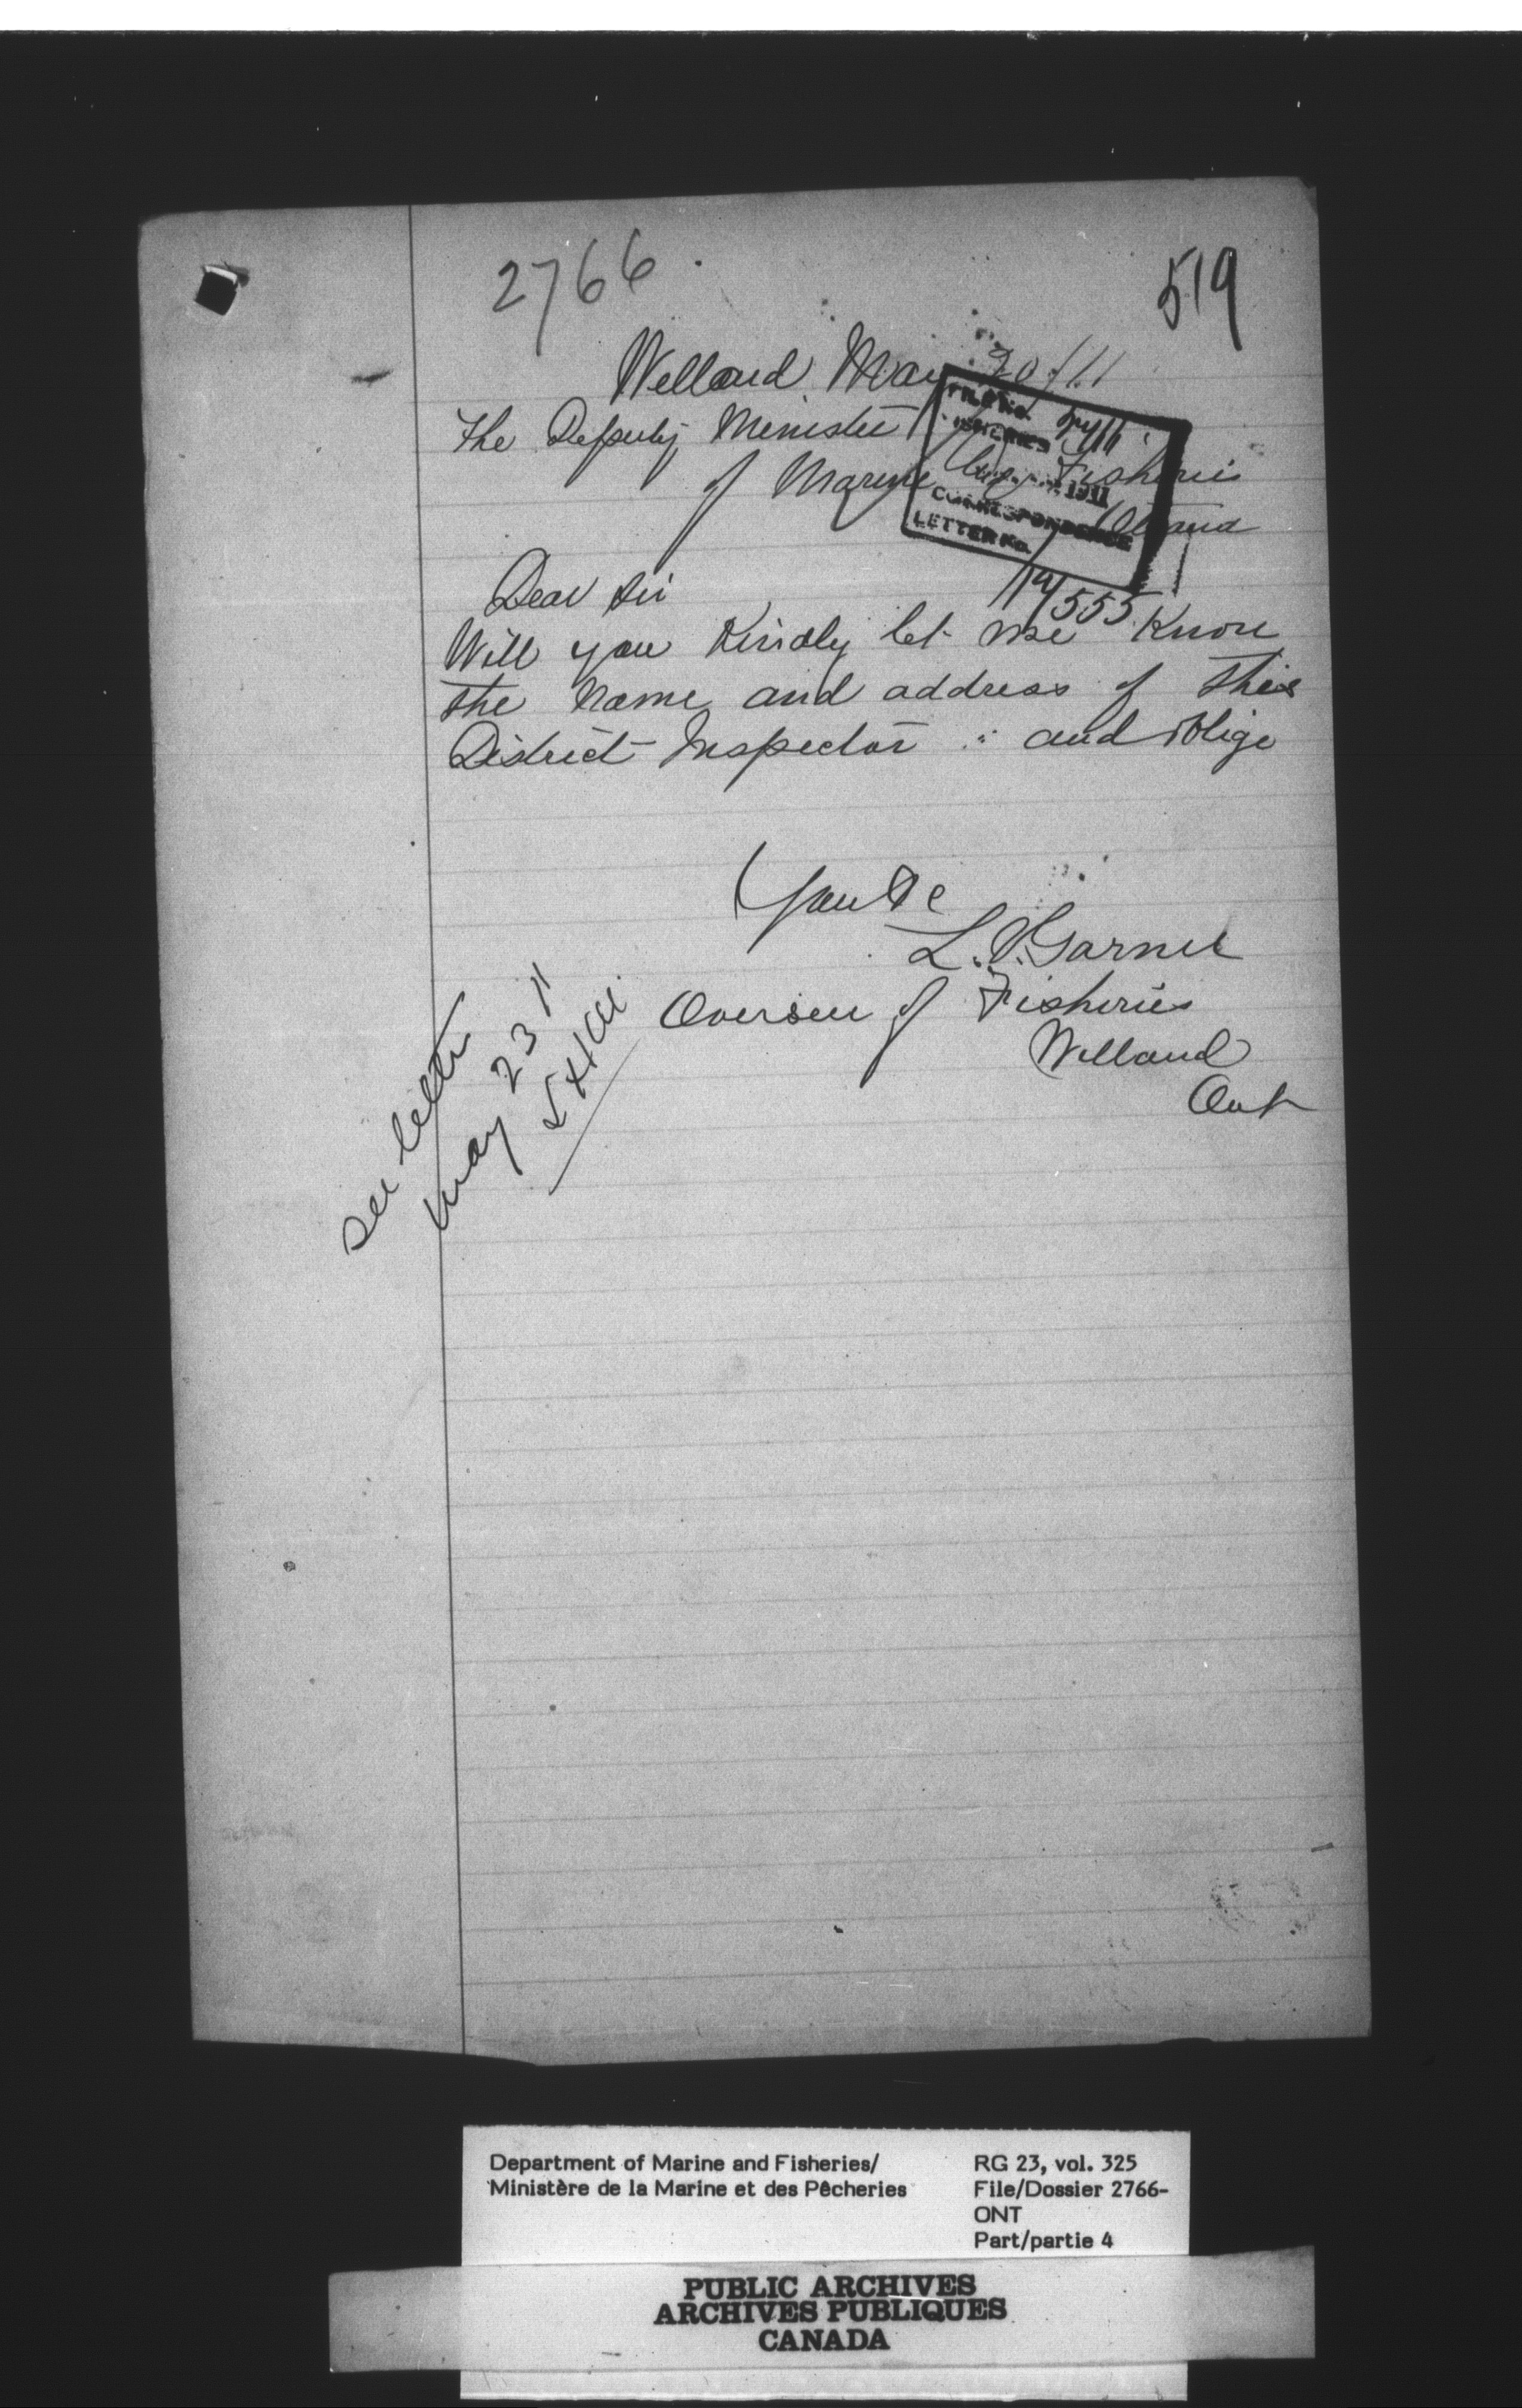 2766
519
Welland May 20/11
The Deputy Minister
of Marine and Fisheries
Ottawa
FILE No.
FISHERIES
1911
CORRESPONDENCE
LETTER No.
555
Dear Sir
Will you Kindly let me Know
the Name and address of this
District Inspector and oblige
Yours
L. Garner
Overseer of Fisheries
Welland
Ont
See letter
May 23 11
Department of Marine and Fisheries/
Ministère de la Marine et des Pêcheries
RG 23, vol. 325
File/Dossier 2766-
ONT
Part/partie 4
PUBLIC ARCHIVES
ARCHIVES PUBLIQUES
CANADA